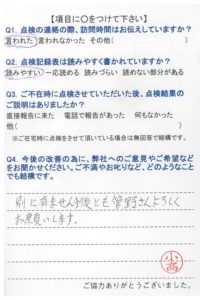 【項目に〇をつけて下さい】
Q1. 点検の連絡の際、訪問時間はお伝えしていますか？
言われた 言われなかった その他( )
Q2. 点検記録表は読みやすく書かれていますか？
読みやすい 一応読める 読みづらい 読めない部分がある
Q3. ご不在時に点検させていただいた後、点検結果の
ご説明はありましたか？
直接報告に来た 電話で報告があった 何もなかった
他( )
※ご在宅時に点検をさせて頂いている場合は無回答で結構です。
Q4. 今後の改善の為に、弊社へのご意見やご希望など
をお聞かせください。ご不満やお叱りなど、どのようなこと
でも結構です。
別に有ません今後とも菅野さんよろしく
お願いします。
小高
ご協力ありがとうございました。